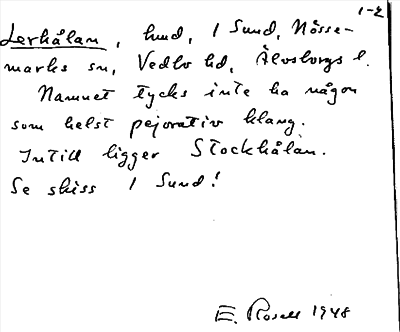 1-2
Lerhålan, hmd, 1 Sund, Nösse-
marks sn, Vedbo hd, Älvsborgs l.
Namnet tycks inte ha någon
som helst pejorativ klang.
Intill ligger Stockhålan.
Se skiss 1 Sund!
E. Rosell 1948